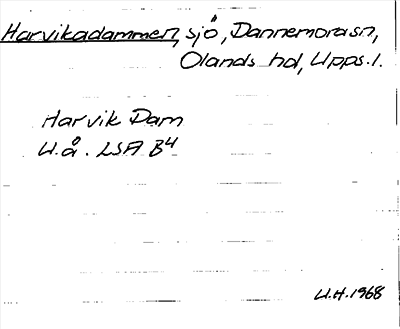 Harvikadammen, sjö, Dannemorasn,
Olands hd, Upps. l.
Harvik Dam
U.å. LSA B4
U.H. 1968